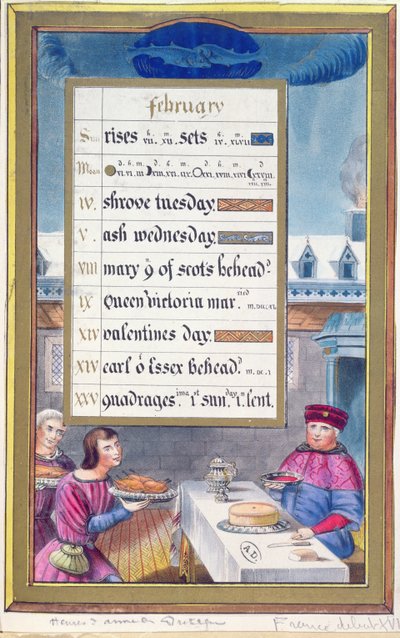 february
Sun rises h. m. vii. xii. sets h. m. iv. xlvii
Moon
IV. shrove tuesday.
V. ash wednesday.
VIII mary q of scots behead.d
IX Queen Victoria mar.ried m.dccc.xl
XIV valentines day.
XIV earl o Essex behead.d m.dc.i
XXV quadrages.ima 1st sun.day in lent.
A.D.
Heures d'anne de Bretagne
France debut XVI